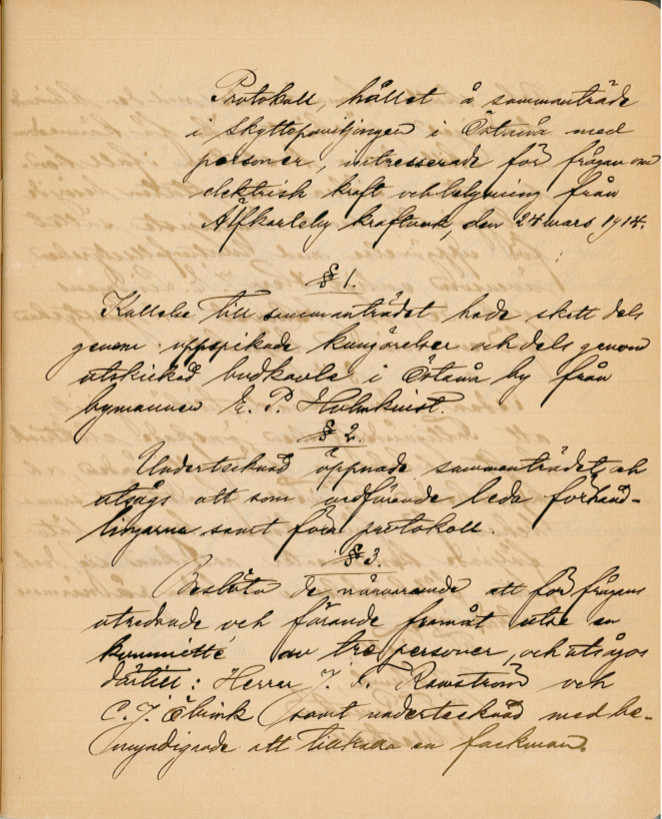 Protokoll, hållet å sammanträde
i Skyttepaviljongen i Östanå med
personer, intresserade för frågan om
elektrisk kraft och belysning från
Älfkarleby kraftverk, den 24 mars 1914.
§ 1.
Kallelse till sammanträdet hade skett dels
genom uppspikade kungörelser och dels genom
utskickad budkavle i Östanå by från
byman­nen E. P. Holmkvist.
§ 2.
Undertecknad öppnade sammanträdet, och
utsågs att som ordförande leda förhand-
lingarna samt föra protokoll.
§ 3.
Beslöto de närvarande att för frågans
utredande och förande framåt utse en
kommitté av tre personer, och utsågos
därtill: Herrar J. F. och
C. J. samt undertecknad med be-
myndigade att tillkalla en fackman.